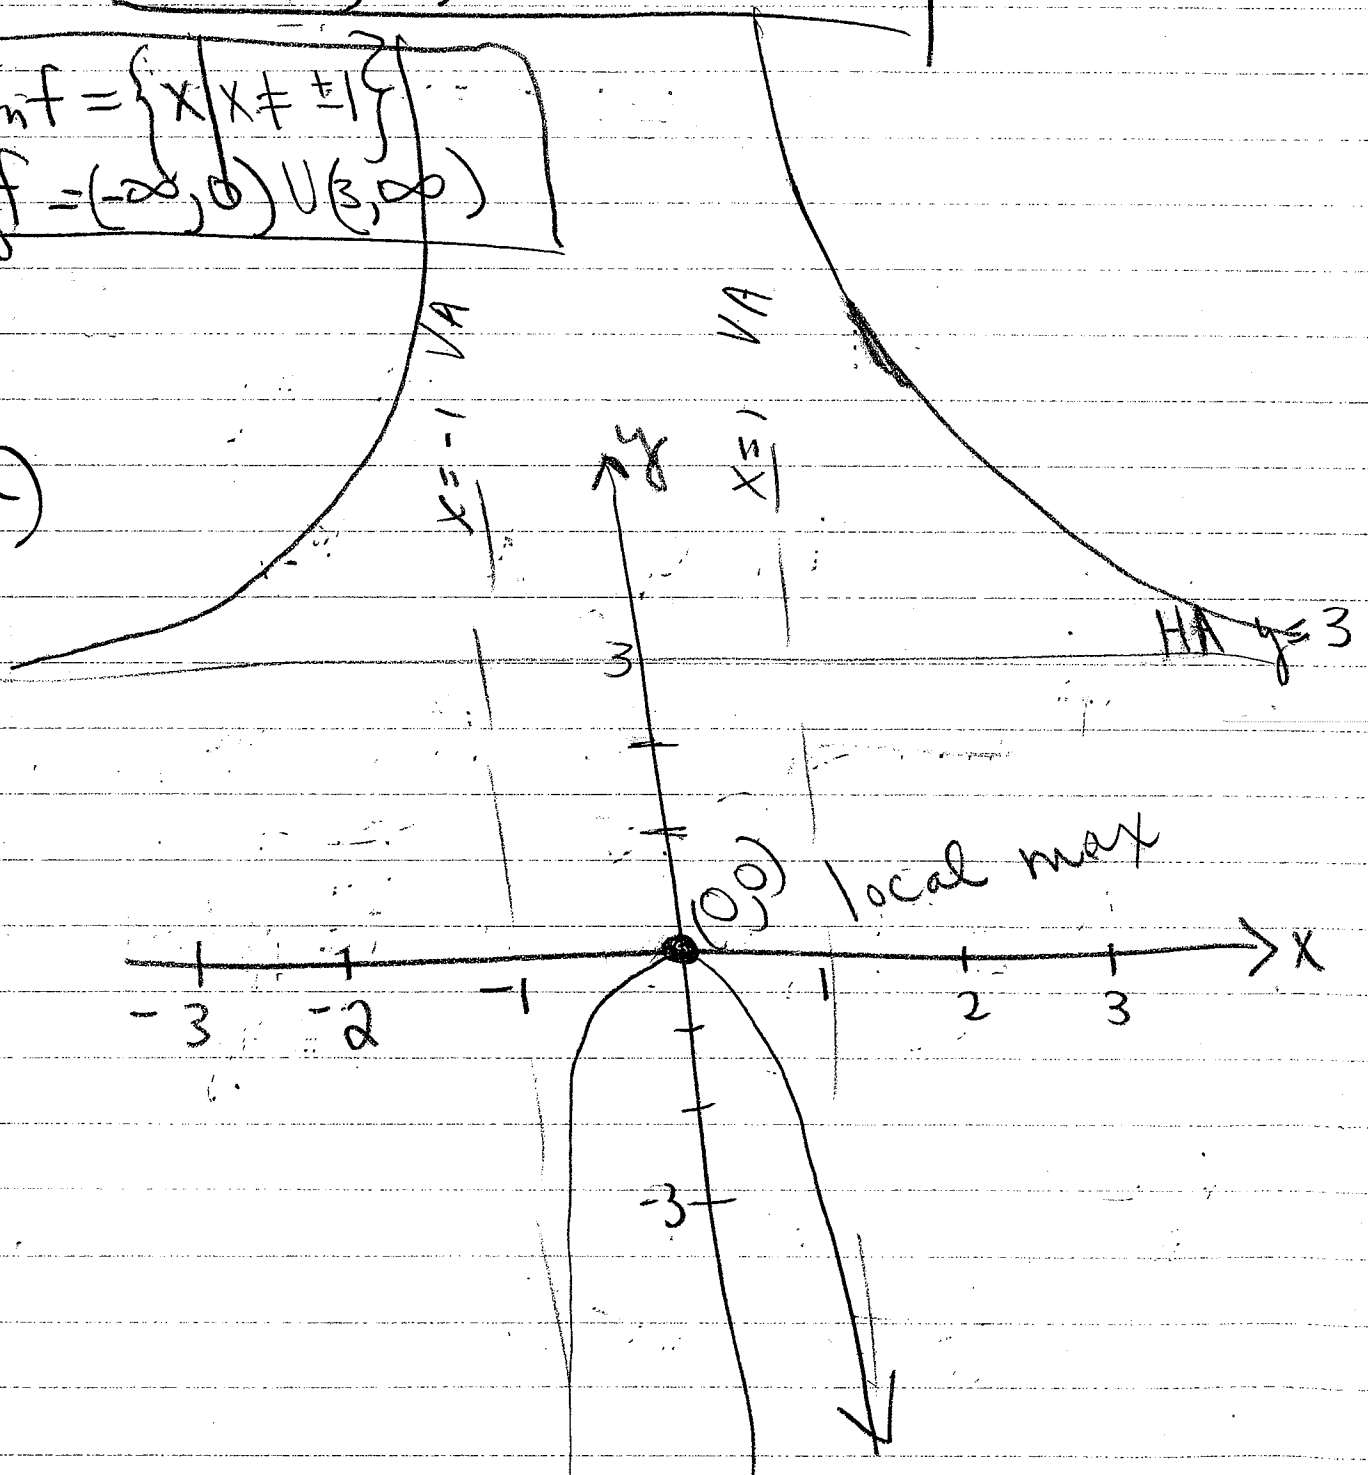 mf = {x | x ≠ ±1}
f = (-∞, 0) ∪ (3, ∞)
VA
VA
x = -1
x = 1
y
)
3
HA y = 3
(0,0) local max
x
-3 -2 -1 1 2 3
-3